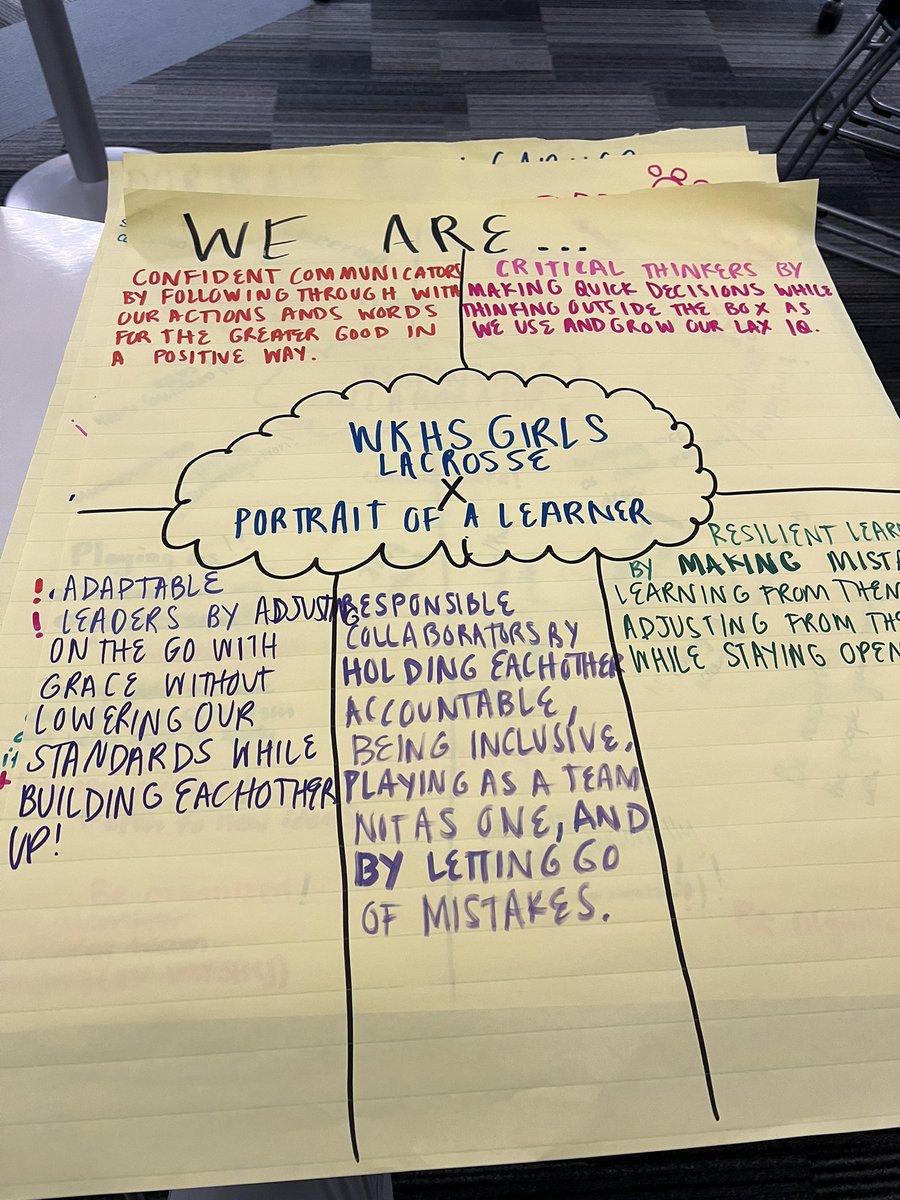 WE ARE...
CONFIDENT COMMUNICATORS
BY FOLLOWING THROUGH WITH
OUR ACTIONS ANDS WORDS
FOR THE GREATER GOOD IN
A POSITIVE WAY.
CRITICAL THINKERS BY
MAKING QUICK DECISIONS WHILE
THINKING OUTSIDE THE BOX AS
WE USE AND GROW OUR LAX IQ.
WKHS GIRLS
LACROSSE
X
PORTRAIT OF A LEARNER
! ADAPTABLE
! LEADERS BY ADJUSTING
ON THE GO WITH
GRACE WITHOUT
LOWERING OUR
STANDARDS WHILE
BUILDING EACHOTHER
UP!
RESPONSIBLE
COLLABORATORS BY
HOLDING EACHOTHER
ACCOUNTABLE,
BEING INCLUSIVE,
PLAYING AS A TEAM
NOT AS ONE, AND
BY LETTING GO
OF MISTAKES.
RESILIENT LEAR
BY MAKING MISTA
LEARNING FROM THEM
ADJUSTING FROM THE
WHILE STAYING OPEN